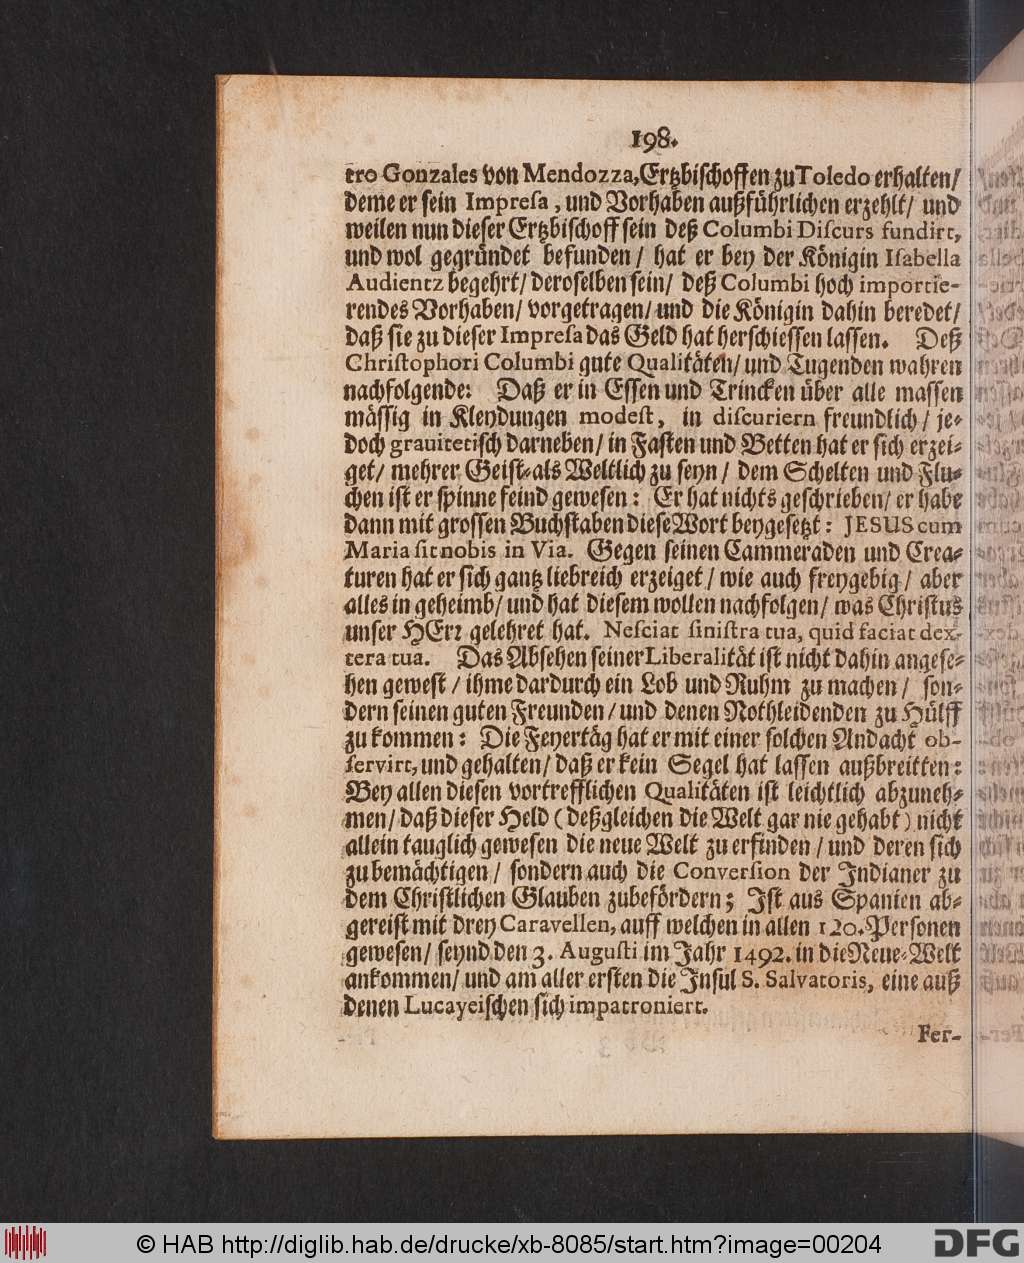 198.
tro Gonzales von Mendozza, Ertzbischoffen zu Toledo erhalten/
deme er sein Impresa, und Vorhaben außführlichen erzehlt/ und
weilen nun dieser Ertzbischoff sein deß Columbi Discurs fundirt,
und wol gegründet befunden/ hat er bey der Königin Isabella
Audientz begehrt/ deroselben sein/ deß Columbi hoch importie-
rendes Vorhaben/ vorgetragen/ und die Königin dahin beredet/
daß sie zu dieser Impresa das Geld hat herschiessen lassen. Deß
Christophori Columbi gute Qualitäten/ und Tugenden wahren
nachfolgende: Daß er in Essen und Trincken über alle massen
mässig in Kleydungen modest, in discuriern freundlich/ je-
doch grauitetisch darneben/ in Fasten und Betten hat er sich erzei-
get/ mehrer Geist-als Weltlich zu seyn/ dem Schelten und Flu-
chen ist er spinne feind gewesen: Er hat nichts geschrieben/ er habe
dann mit grossen Buchstaben diese Wort beygesetzt: JESUS cum
Maria sit nobis in Via. Gegen seinen Cammeraden und Crea-
turen hat er sich gantz liebreich erzeiget/ wie auch freygebig/ aber
alles in geheimb/ und hat diesem wollen nachfolgen/ was Christus
unser HErr gelehret hat. Nesciat sinistra tua, quid faciat dex-
tera tua. Das Absehen seiner Liberalität ist nicht dahin angese-
hen gewest/ ihme dardurch ein Lob und Ruhm zu machen/ son-
dern seinen guten Freunden/ und denen Nothleidenden zu Hülff
zu kommen: Die Feyertäg hat er mit einer solchen Andacht ob-
servirt, und gehalten/ daß er kein Segel hat lassen außbreitten:
Bey allen diesen vortrefflichen Qualitäten ist leichtlich abzuneh-
men/ daß dieser Held (deßgleichen die Welt gar nie gehabt) nicht
allein tauglich gewesen die neue Welt zu erfinden/ und deren sich
zu bemächtigen/ sondern auch die Conversion der Indianer zu
dem Christlichen Glauben zubefördern; Ist aus Spanien ab-
gereist mit drey Caravellen, auff welchen in allen 120. Personen
gewesen/ seynd den 3. Augusti im Jahr 1492. in die Neue-Welt
ankommen/ und am aller ersten die Insul S. Salvatoris, eine auß
denen Lucayeischen sich impatroniert.
Fer-
© HAB http://diglib.hab.de/drucke/xb-8085/start.htm?image=00204
DFG